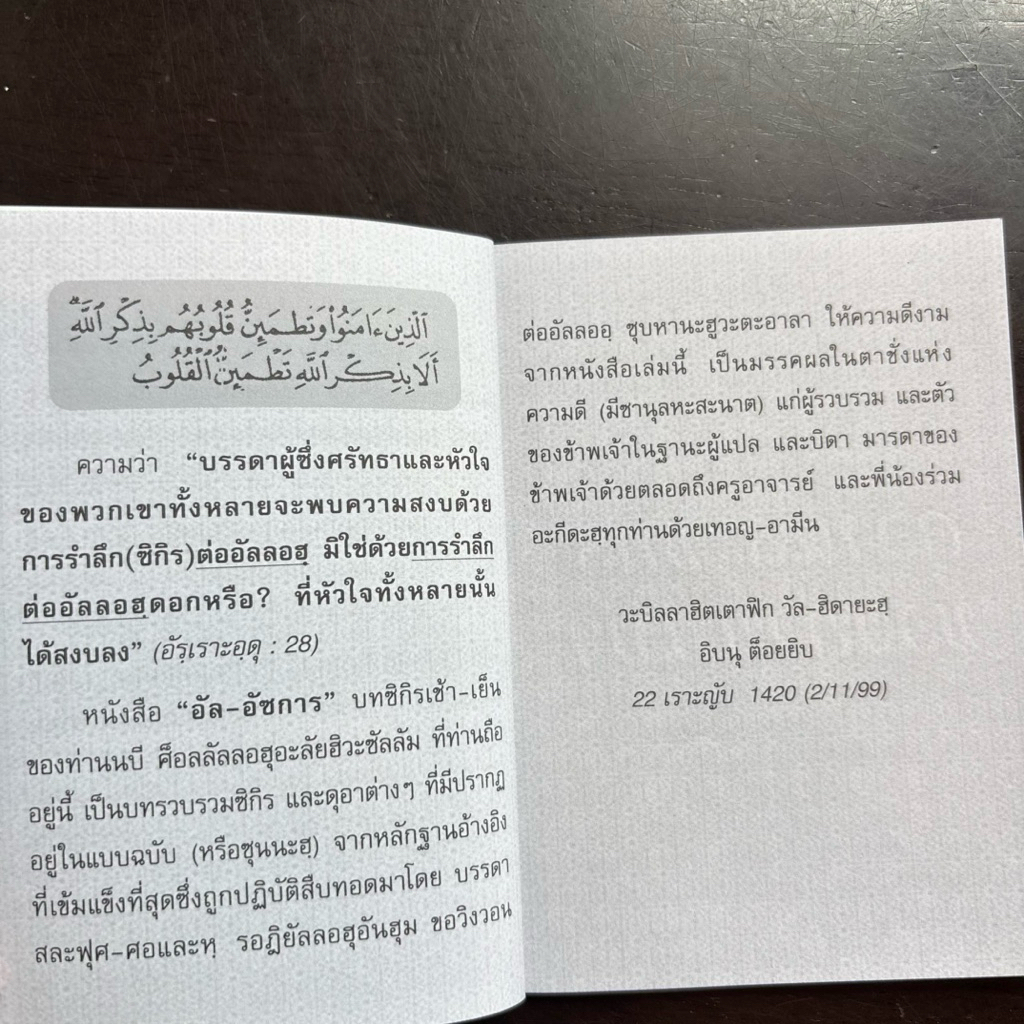 ٱلَّذِينَ ءَامَنُوا۟ وَتَطْمَئِنُّ قُلُوبُهُم بِذِكْرِ ٱللَّهِ ۗ
أَلَا بِذِكْرِ ٱللَّهِ تَطْمَئِنُّ ٱلْقُلُوبُ
ความว่า “บรรดาผู้ซึ่งศรัทธาและหัวใจ
ของพวกเขาทั้งหลายจะพบความสงบด้วย
การรำลึก(ซิกิร)ต่ออัลลอฮฺ มิใช่ด้วยการรำลึก
ต่ออัลลอฮฺดอกหรือ? ที่หัวใจทั้งหลายนั้น
ได้สงบลง” (อัรฺเราะอฺดุ : 28)
หนังสือ “อัล-อัซการ” บทซิกิรเช้า-เย็น
ของท่านนบี ศ็อลลัลลอฮุอะลัยฮิวะซัลลัม ที่ท่านถือ
อยู่นี้ เป็นบทรวบรวมซิกิร และดุอาต่างๆ ที่มีปรากฏ
อยู่ในแบบฉบับ (หรือซุนนะฮฺ) จากหลักฐานอ้างอิง
ที่เข้มแข็งที่สุดซึ่งถูกปฏิบัติสืบทอดมาโดย บรรดา
สละฟุศ-ศอและหฺ รอฎิยัลลอฮุอันฮุม ขอวิงวอน
ต่ออัลลอฮฺ ซุบหานะฮูวะตะอาลา ให้ความดีงาม
จากหนังสือเล่มนี้ เป็นมรรคผลในตาชั่งแห่ง
ความดี (มีซานุลหะสะนาต) แก่ผู้รวบรวม และตัว
ของข้าพเจ้าในฐานะผู้แปล และบิดา มารดาของ
ข้าพเจ้าด้วยตลอดถึงครูอาจารย์ และพี่น้องร่วม
อะกีดะฮฺทุกท่านด้วยเทอญ-อามีน
วะบิลลาฮิตเตาฟิก วัล-ฮิดายะฮฺ
อิบนุ ต็อยยิบ
22 เราะญับ 1420 (2/11/99)